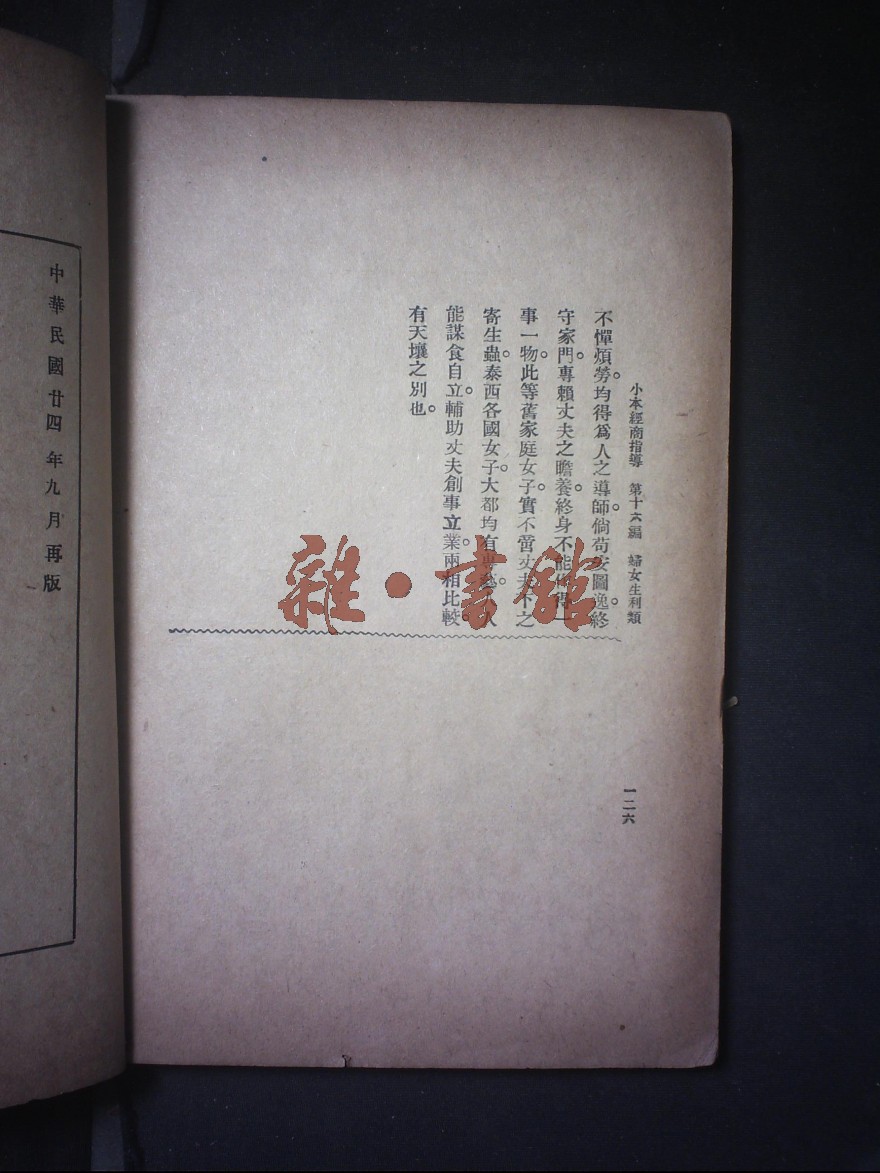 小本經商指導　第十六編　婦女生利類
不憚煩勞。均得爲人之導師。倘苟安圖逸。終
守家門。專賴丈夫之瞻養。終身不能一
事一物。此等舊家庭女子。實不啻丈夫下之
寄生蟲。泰西各國女子。大都均有
能謀食自立。輔助丈夫創事立業。兩相比較。
有天壤之別也。
一二六
中華民國廿四年九月再版
雜·書館